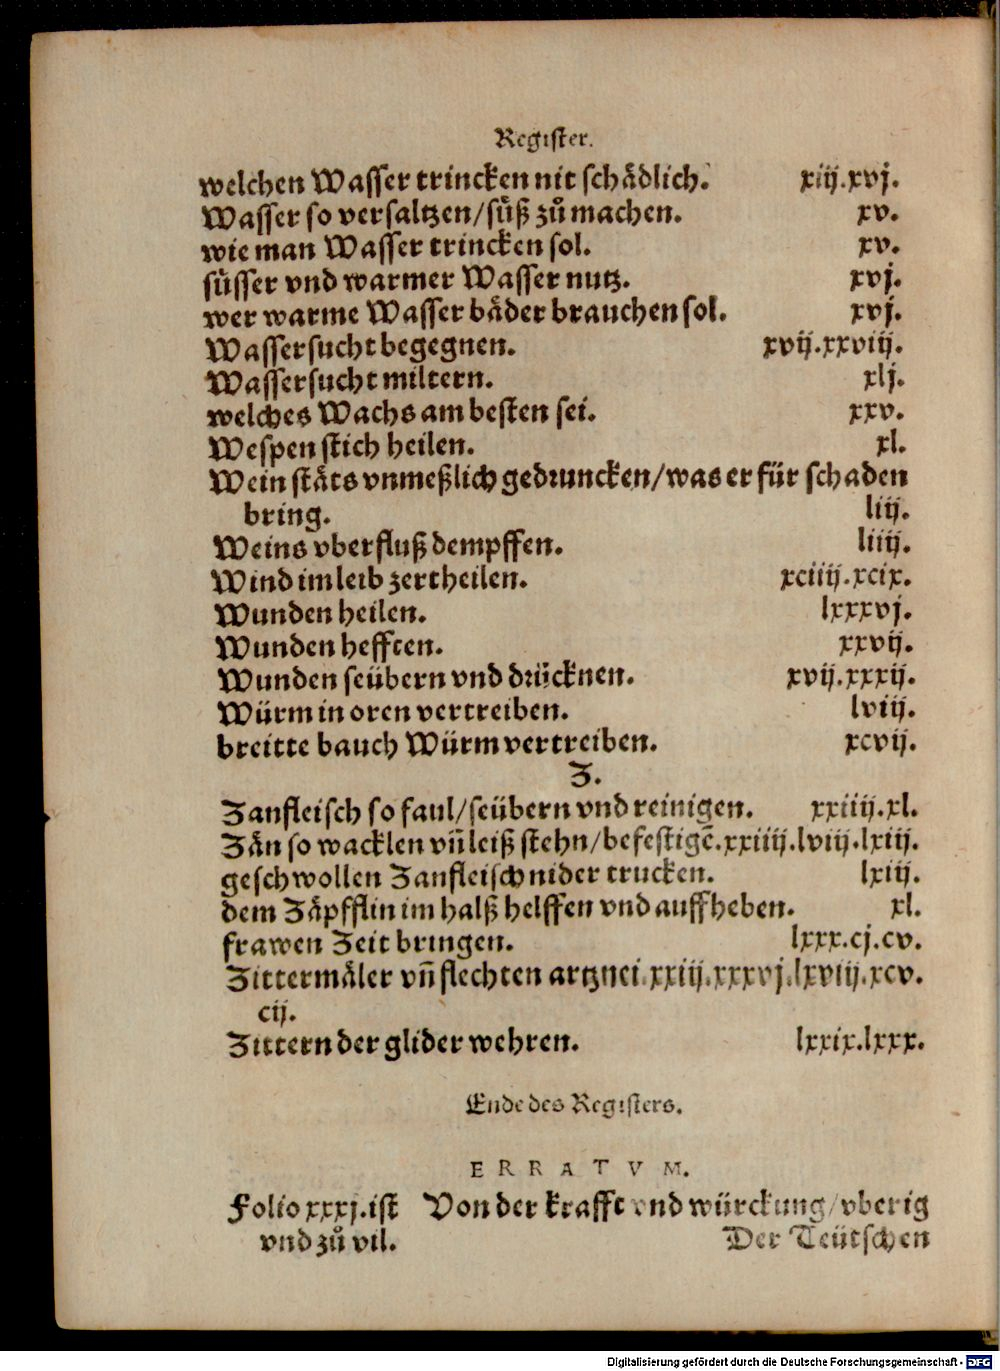 Register.
welchen Wasser trincken nit schädlich. xiij.xvj.
Wasser so versaltzen/süß zů machen. xv.
wie man Wasser trincken sol. xv.
süsser vnd warmer Wasser nutz. xvj.
wer warme Wasser bäder brauchen sol. xvj.
Wassersucht begegnen. xvij.xxviij.
Wassersucht miltern. xlj.
welches Wachs am besten sei. xxv.
Wespen stich heilen. xl.
Wein stäts vnmeßlich gedruncken/was er für schaden
bring. liij.
Weins vberfluß dempffen. liiij.
Wind im leib zertheilen. xciiij.xcix.
Wunden heilen. lxxxvj.
Wunden hefften. xxvij.
Wunden seübern vnd drücknen. xvij.xxxij.
Würm in oren vertreiben. lviij.
breitte bauch Würm vertreiben. xcvij.
Z.
Zanfleisch so faul/seübern vnd reinigen. xxiiij.xl.
Zän so wacklen vñ leiß stehn/befestigē.xxiiij.lviij.lxiij.
geschwollen Zanfleisch nider trucken. lxiij.
dem Zäpfflin im halß helffen vnd auffheben. xl.
frawen Zeit bringen. lxxx.cj.cv.
Zittermäler vñ flechten artznei.xxiij.xxxvj.lxviij.xcv.
cij.
Zittern der glider wehren. lxxix.lxxx.
Ende des Registers.
ERRATVM.
Folio xxxj.ist Von der krafft vnd würckung/vberig
vnd zů vil. Der Teütschen
Digitalisierung gefördert durch die Deutsche Forschungsgemeinschaft - DFG